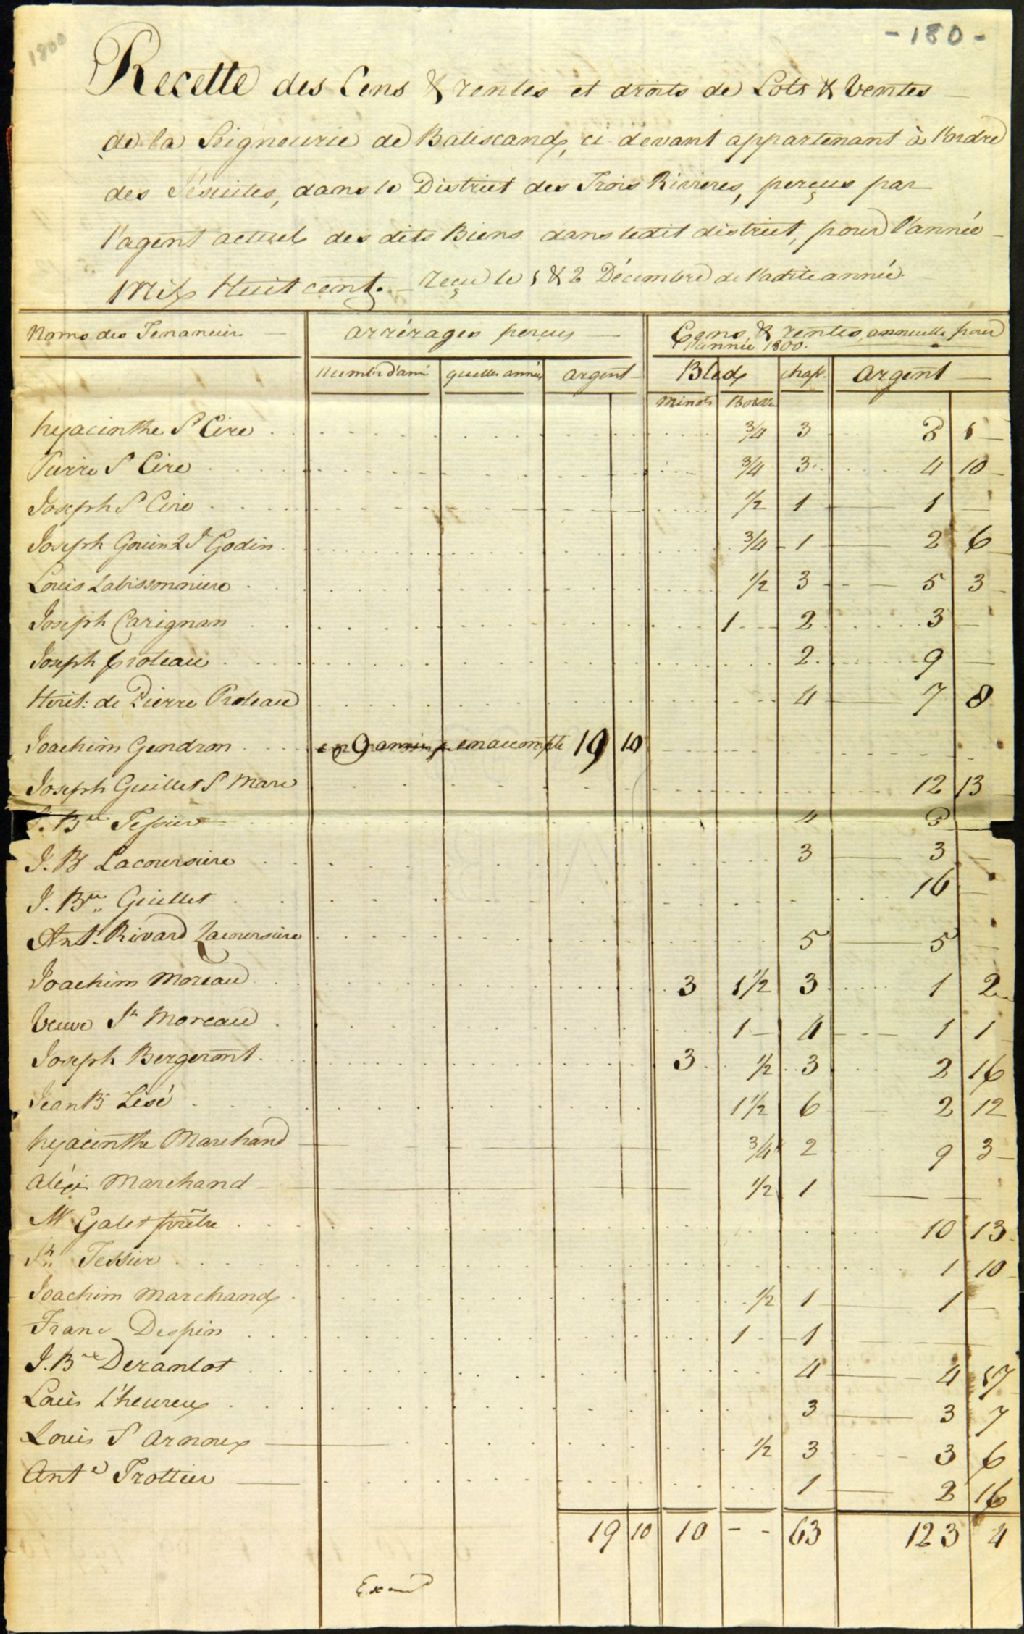 1800
- 180 -
Recette des Cens & rentes et droits de Lots & Ventes
de la Seigneurie de Batiscand, ci devant appartenant à l'ordre
des Jésuites, dans le District des Trois Rivieres, perçus par
l'agent actuel des dits Biens dans ledit district, pour l'année
Mil Huit cent. reçu le 1 & 2 Décembre de ladite année
Noms des Tenanciers arrérages perçus Cens & rentes annuelles pour
l'année 1800.
nombre d'ané quelles années argent Bled chap. argent
Minots Boiss
hyacinthe St Cire 3/4 3 2 1
Pierre St Cire 3/4 3 4 10
Joseph St Cire 1/2 1 1
Joseph Gouin & J Godin 3/4 1 2 6
Louis Labissonniere 1/2 3 5 3
Joseph Carignan 1 2 3
Joseph proteau 2 9
Herit: de Pierre Proteau 4 7 8
Joachim Gendron en 9 années en acompte 19 10
Joseph Guillet St Marc 12 13
J. Bte Tessier 4 3
J. Bt Lacoursiere 3 3
J. Bte Guillet 16
Ant. Rivard Lacoursiere 5 5
Joachim Moreau 3 1 1/2 3 1 2
Veuve Jh Moreau 1 4 1 1
Joseph Bergeront 3 1/2 3 2 16
Jean B Lesé 1 1/2 6 2 12
hyacinthe Marchand 3/4 2 9 3
alexi Marchand 1/2 1
Mr Galet prêtre 10 13
Tessier 1 10
Joachim Marchand 1/2 1 1
Franc Despin 1 1
J. Bte Deranlot 4 4 17
Louis l'heureux 3 3 7
Louis St Arnoux 1/2 3 3 6
Ante Trottier 1 2 16
19 10 10 - - 63 123 4